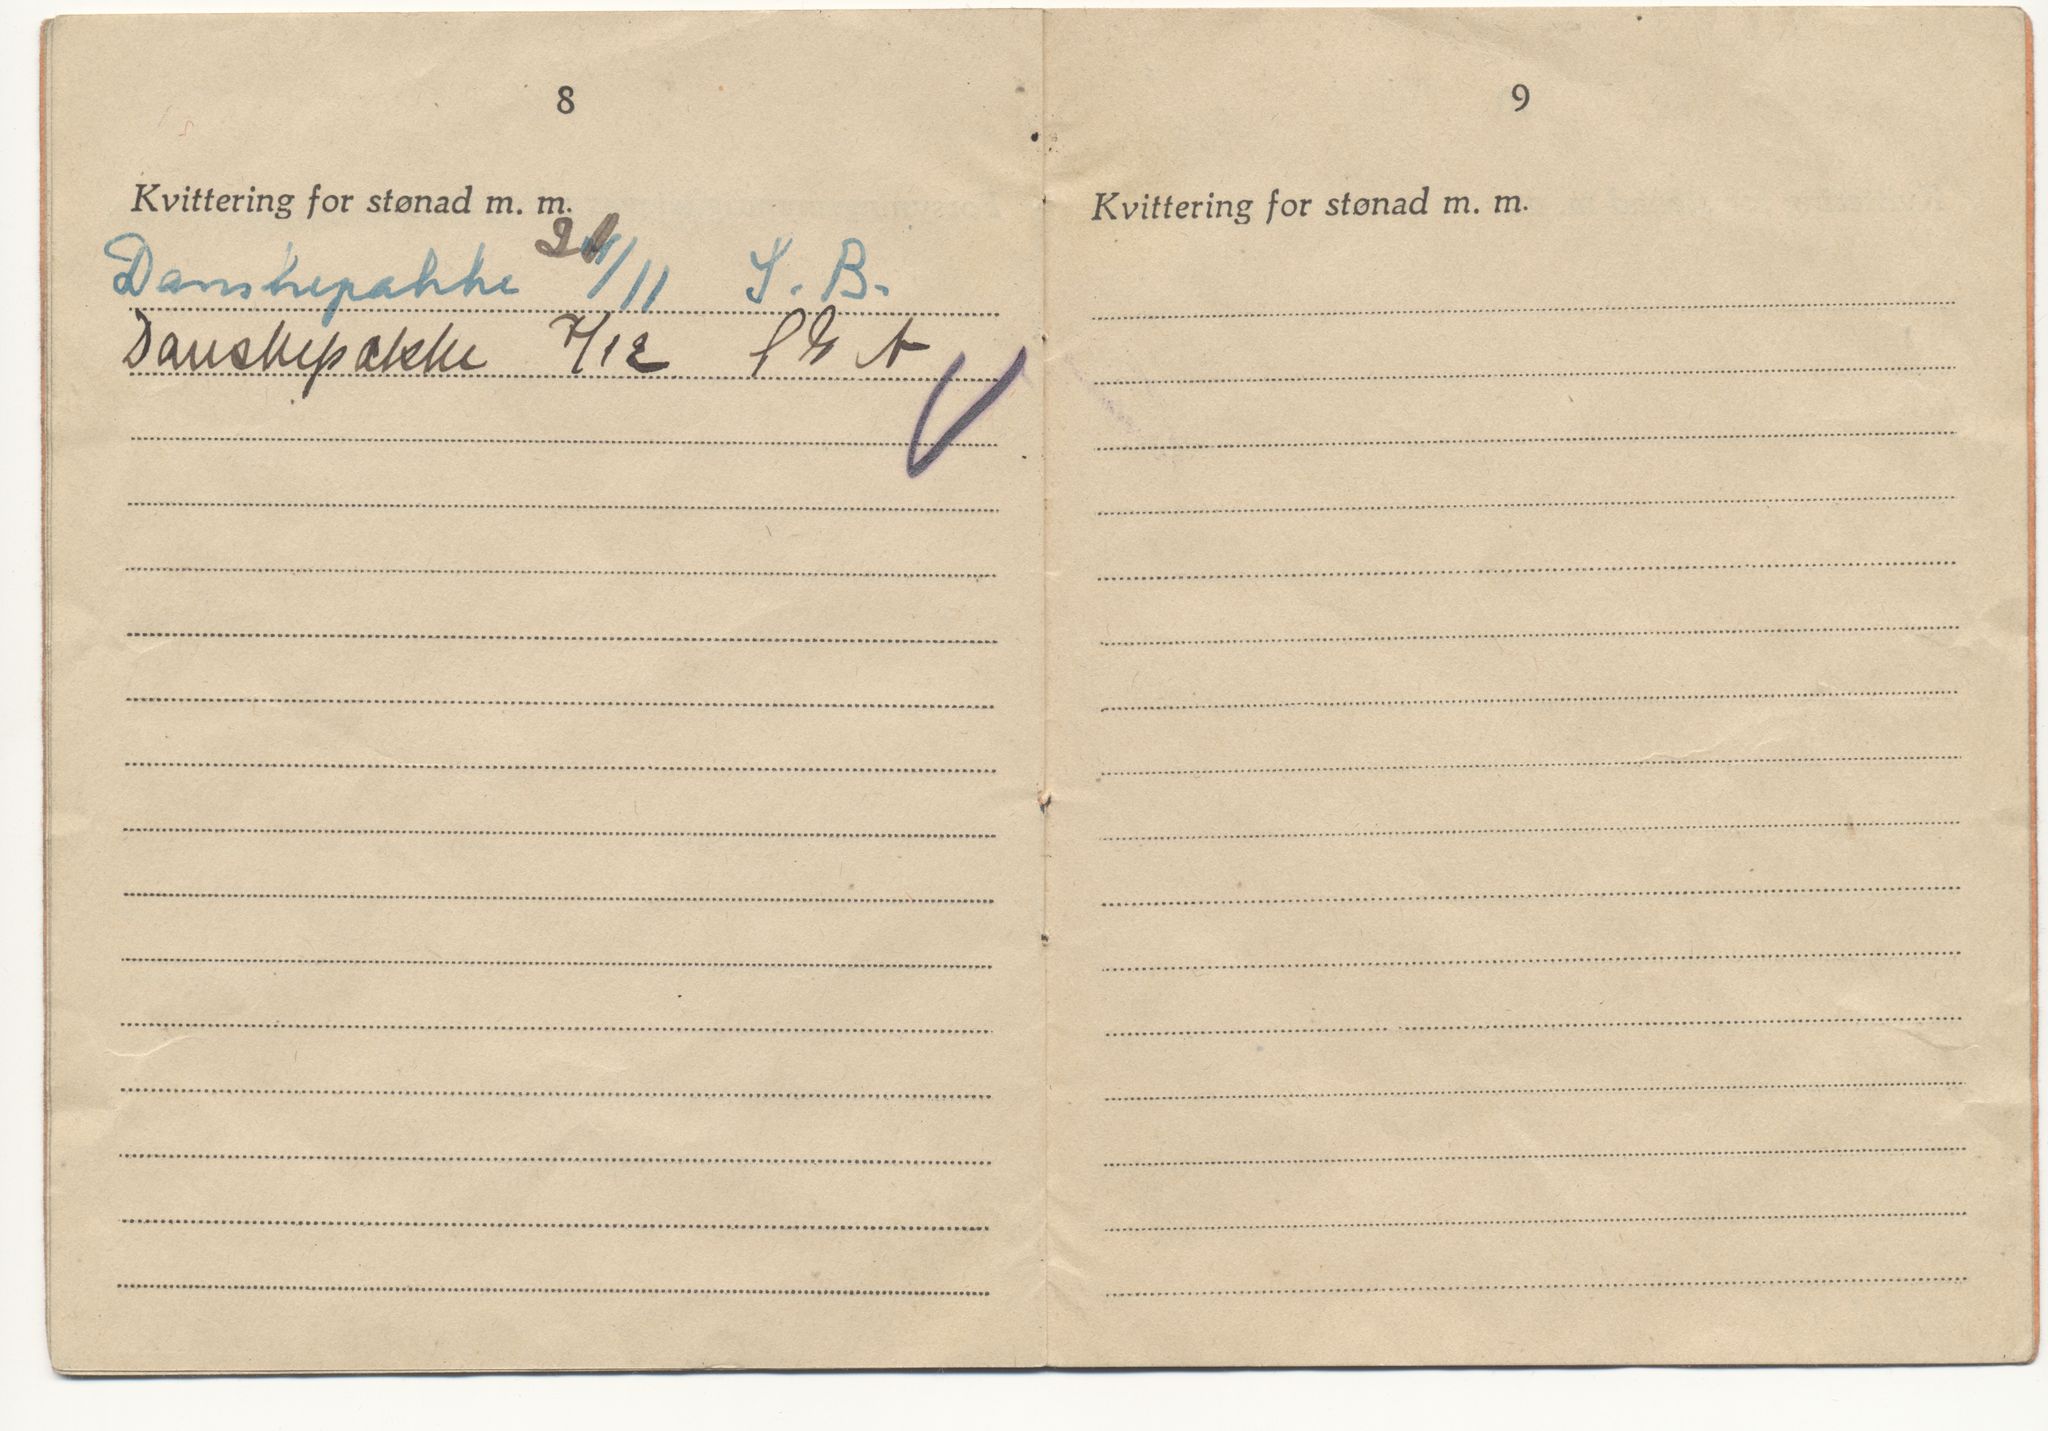 8
Kvittering for stønad m. m.
Danskepakke /11 S. B.
Danskepakke 7/12
9
Kvittering for stønad m. m.